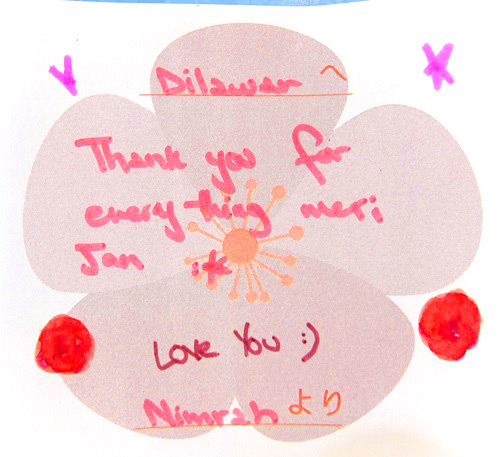 Dilawar へ
Thank you for
everything meri
Jan
Love You :)
Nimrah より